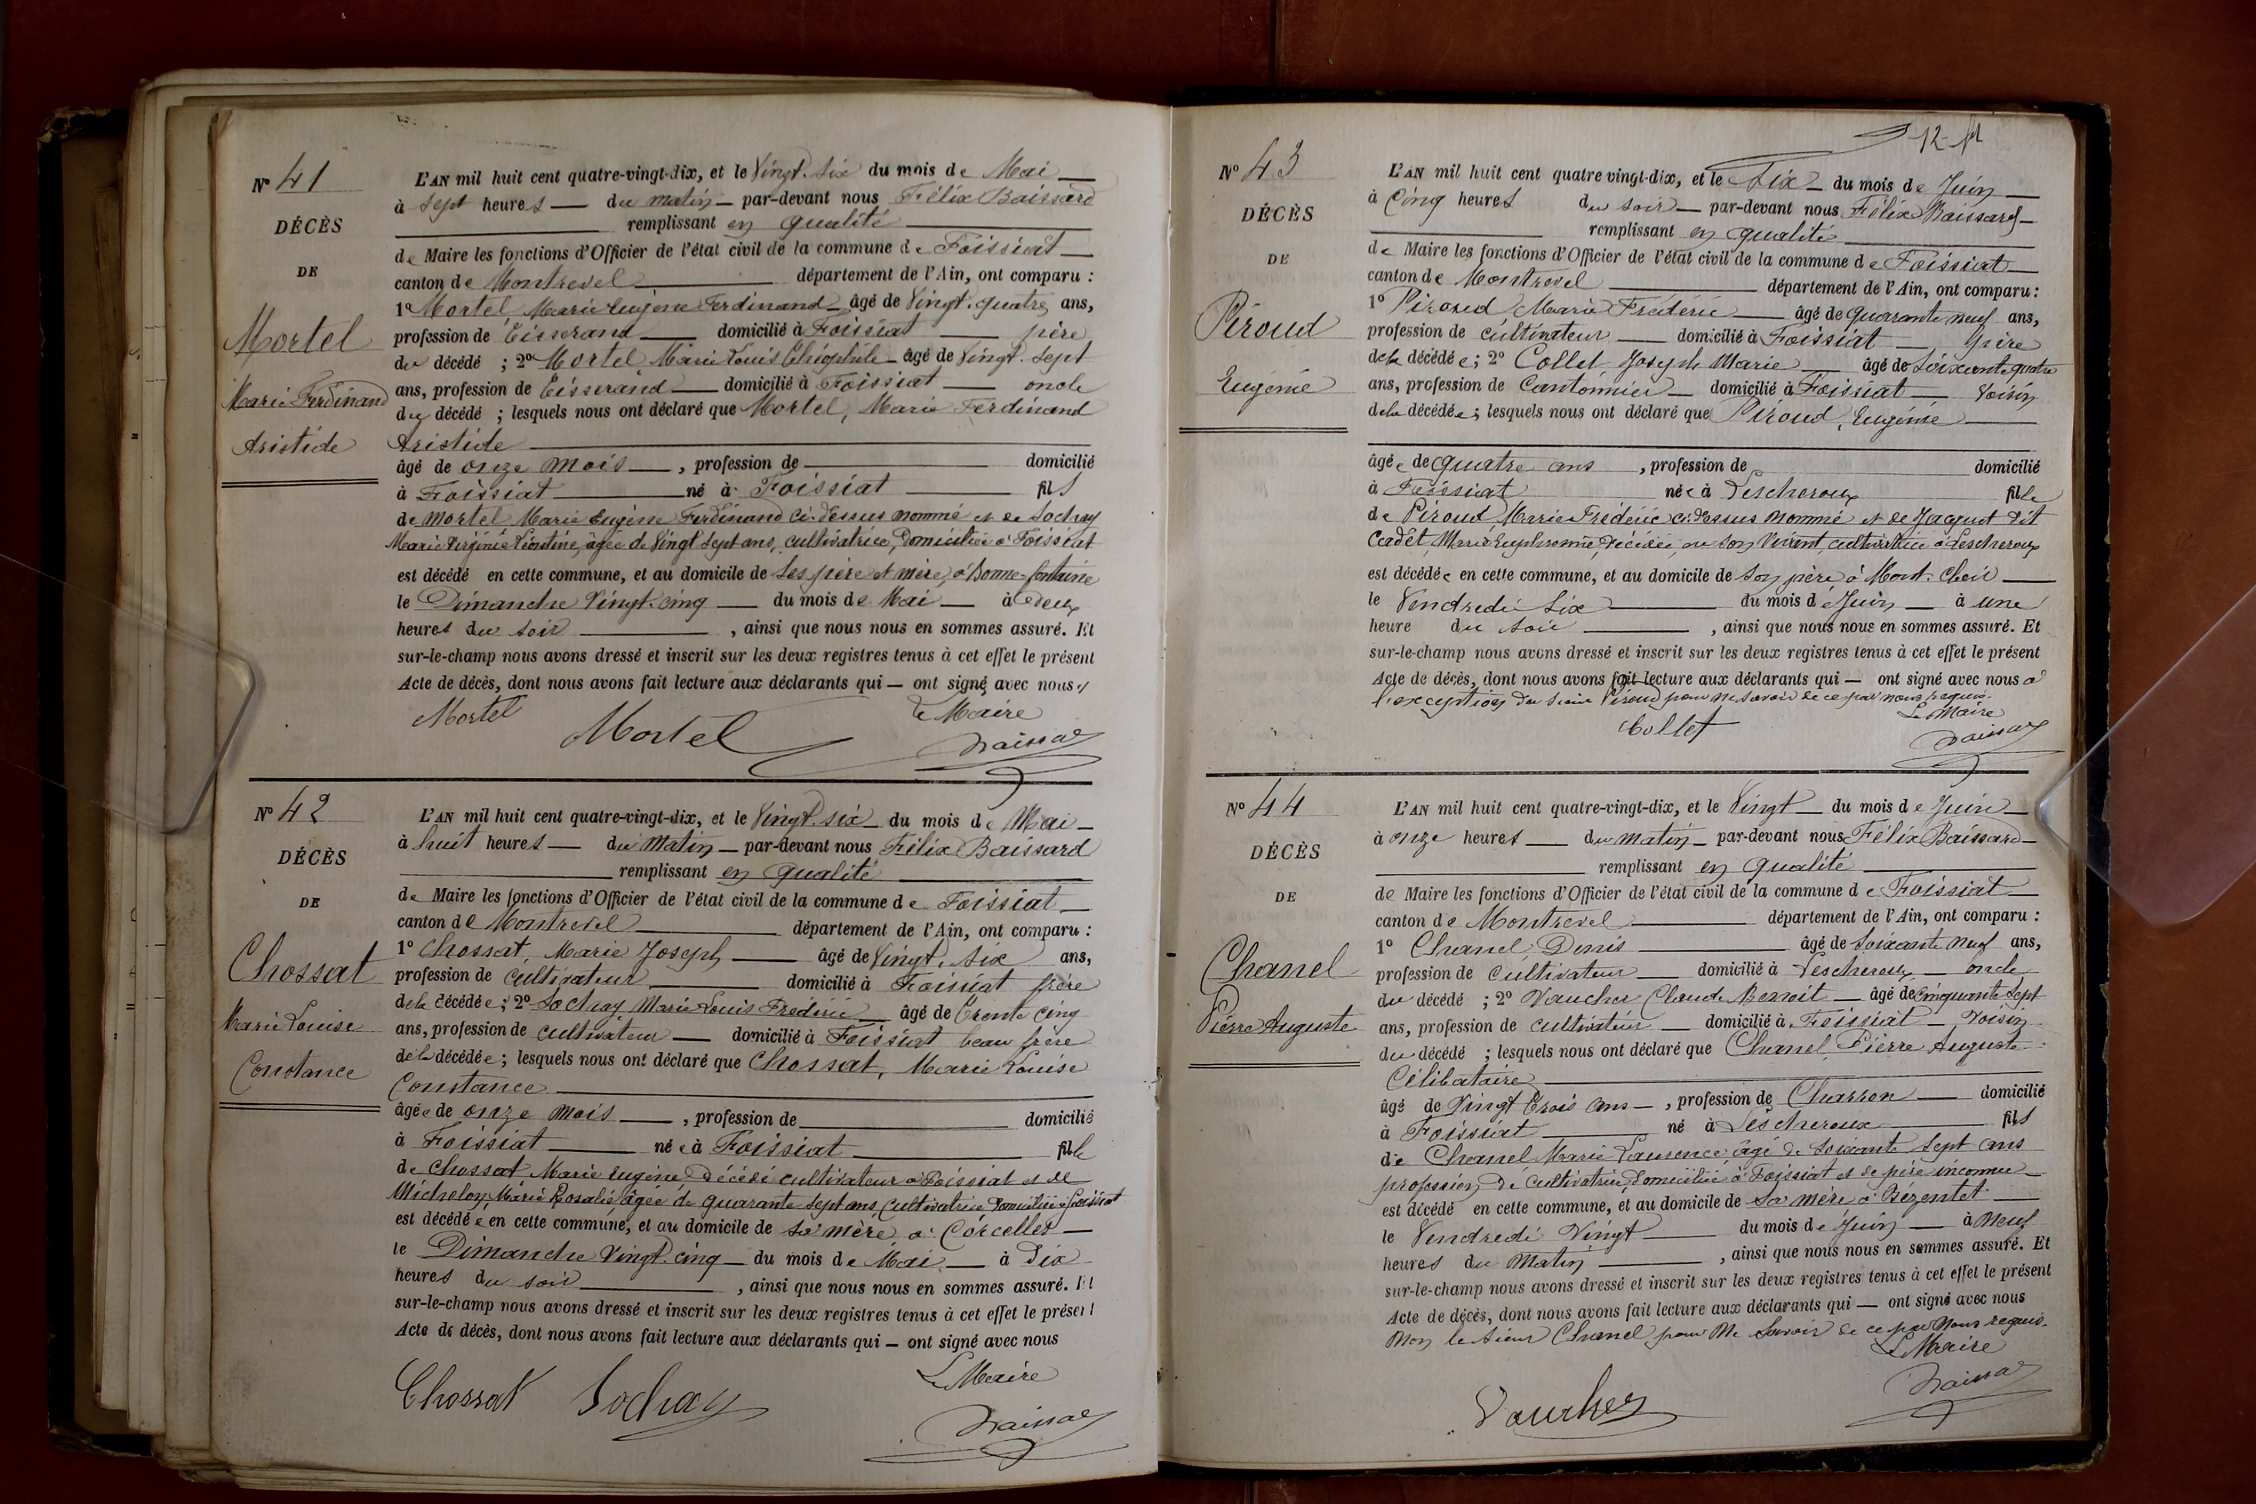 Nº 41
DÉCÈS
DE
Mortel
Marie Ferdinand
Aristide
L'AN mil huit cent quatre-vingt-dix, et le Vingt-six du mois de Mai
à Sept heures du matin par-devant nous Félix Baissard
remplissant en qualité
de Maire les fonctions d'Officier de l'état civil de la commune de Foissiat
canton de Montrevel département de l'Ain, ont comparu :
1º Mortel Marie Eugène Ferdinand âgé de Vingt-quatre ans,
profession de Tisserand domicilié à Foissiat père
du décédé ; 2º Mortel Marie Louis Théophile âgé de Vingt-Sept
ans, profession de Tisserand domicilié à Foissiat oncle
du décédé ; lesquels nous ont déclaré que Mortel, Marie Ferdinand
Aristide
âgé de onze mois , profession de domicilié
à Foissiat né à Foissiat fils
de Mortel Marie Eugène Ferdinand ci-dessus nommé et de Sochay
Marie Virginie Léontine, âgée de Vingt Sept ans, cultivatrice, Domiciliée à Foissiat
est décédé en cette commune, et au domicile de Ses père et mère, à Bonne-fontaine
le Dimanche Vingt-cinq du mois de Mai à Deux
heures du soir , ainsi que nous nous en sommes assuré. Et
sur-le-champ nous avons dressé et inscrit sur les deux registres tenus à cet effet le présent
Acte de décès, dont nous avons fait lecture aux déclarants qui — ont signé avec nous
Mortel Mortel Le Maire
Baissard
Nº 42
DÉCÈS
DE
Chossat
Marie Louise
Constance
L'AN mil huit cent quatre-vingt-dix, et le Vingt-six du mois de Mai
à huit heures du Matin par-devant nous Félix Baissard
remplissant en qualité
de Maire les fonctions d'Officier de l'état civil de la commune de Foissiat
canton de Montrevel département de l'Ain, ont comparu :
1º Chossat, Marie Joseph âgé de Vingt-Six ans,
profession de Cultivateur domicilié à Foissiat frère
de la décédée ; 2º Sochay, Marie Louis Frédéric âgé de Trente cinq
ans, profession de cultivateur domicilié à Foissiat beau frère
de la décédée ; lesquels nous ont déclaré que Chossat, Marie Louise
Constance
âgée de onze mois , profession de domicilié
à Foissiat née à Foissiat fille
de Chossat Marie Eugène, Décédé cultivateur à Foissiat et de
Micheloy Marie Rosalie, âgée de quarante Sept ans, Cultivatrice Domiciliée à Foissiat
est décédée en cette commune, et au domicile de Sa mère à Corcelles
le Dimanche Vingt-cinq du mois de Mai à Dix
heures du soir , ainsi que nous nous en sommes assuré. Et
sur-le-champ nous avons dressé et inscrit sur les deux registres tenus à cet effet le présent
Acte de décès, dont nous avons fait lecture aux déclarants qui — ont signé avec nous
Chossat Sochay Le Maire
Baissard
12
Nº 43
DÉCÈS
DE
Piroud
Eugénie
L'AN mil huit cent quatre-vingt-dix, et le Six du mois de Juin
à Cinq heures du soir par-devant nous Félix Baissard
remplissant en qualité
de Maire les fonctions d'Officier de l'état civil de la commune de Foissiat
canton de Montrevel département de l'Ain, ont comparu :
1º Piroud Marie Frédéric âgé de quarante neuf ans,
profession de cultivateur domicilié à Foissiat père
de la décédée ; 2º Collet Joseph Marie âgé de Soixante quatre
ans, profession de Cantonnier domicilié à Foissiat Voisin
de la décédée ; lesquels nous ont déclaré que Piroud, Eugénie
âgée de quatre ans , profession de domicilié
à Foissiat née à Lescheroux fille
de Piroud Marie Frédéric ci-dessus nommé et de Jacquet dit
Cadet, Marie Euphrosine Décédée, en son Vivant, cultivatrice à Lescheroux
est décédée en cette commune, et au domicile de Son père à Mont-Cheil
le Vendredi Six du mois de Juin à une
heure du Soir , ainsi que nous nous en sommes assuré. Et
sur-le-champ nous avons dressé et inscrit sur les deux registres tenus à cet effet le présent
Acte de décès, dont nous avons fait lecture aux déclarants qui — ont signé avec nous à
l'exception du sieur Piroud pour ne savoir de ce par nous requis.
Collet Le Maire
Baissard
Nº 44
DÉCÈS
DE
Chanel
Pierre Auguste
L'AN mil huit cent quatre-vingt-dix, et le Vingt du mois de Juin
à onze heures du matin par-devant nous Félix Baissard
remplissant en qualité
de Maire les fonctions d'Officier de l'état civil de la commune de Foissiat
canton de Montrevel département de l'Ain, ont comparu :
1º Chanel, Denis âgé de Soixante neuf ans,
profession de Cultivateur domicilié à Lescheroux oncle
du décédé ; 2º Vaucher Claude Benoit âgé de Cinquante Sept
ans, profession de cultivateur domicilié à Foissiat Voisin
du décédé ; lesquels nous ont déclaré que Chanel, Pierre Auguste
Célibataire
âgé de Vingt Trois ans , profession de Charron domicilié
à Foissiat né à Lescheroux fils
de Chanel Marie Laurence âgé de Soixante Sept ans
profession de Cultivatrice, Domiciliée à Foissiat et de père inconnu
est décédé en cette commune, et au domicile de Sa mère à Bézentet
le Vendredi Vingt du mois de Juin à Neuf
heures du Matin , ainsi que nous nous en sommes assuré. Et
sur-le-champ nous avons dressé et inscrit sur les deux registres tenus à cet effet le présent
Acte de décès, dont nous avons fait lecture aux déclarants qui — ont signé avec nous
Non le Sieur Chanel pour Ne Savoir de ce par Nous requis.
Le Maire
Vaucher Baissard